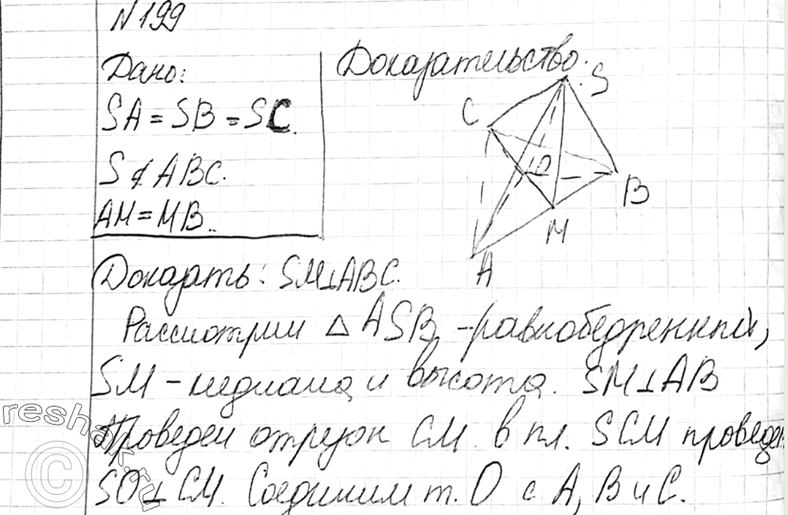 N 199
Дано:
SA = SB = SC.
S ∉ ABC.
AM = MB.
Доказательство:
S
C
O
B
M
A
Доказать: SM⊥ABC.
Рассмотрим △ ASB, -равнобедренный,
SM - медиана и высота. SM⊥AB
Проведем отрезок CM. в пл. SCM проведем
SO⊥CM. Соединим т. O с A, B и C.
reshak.ru
©